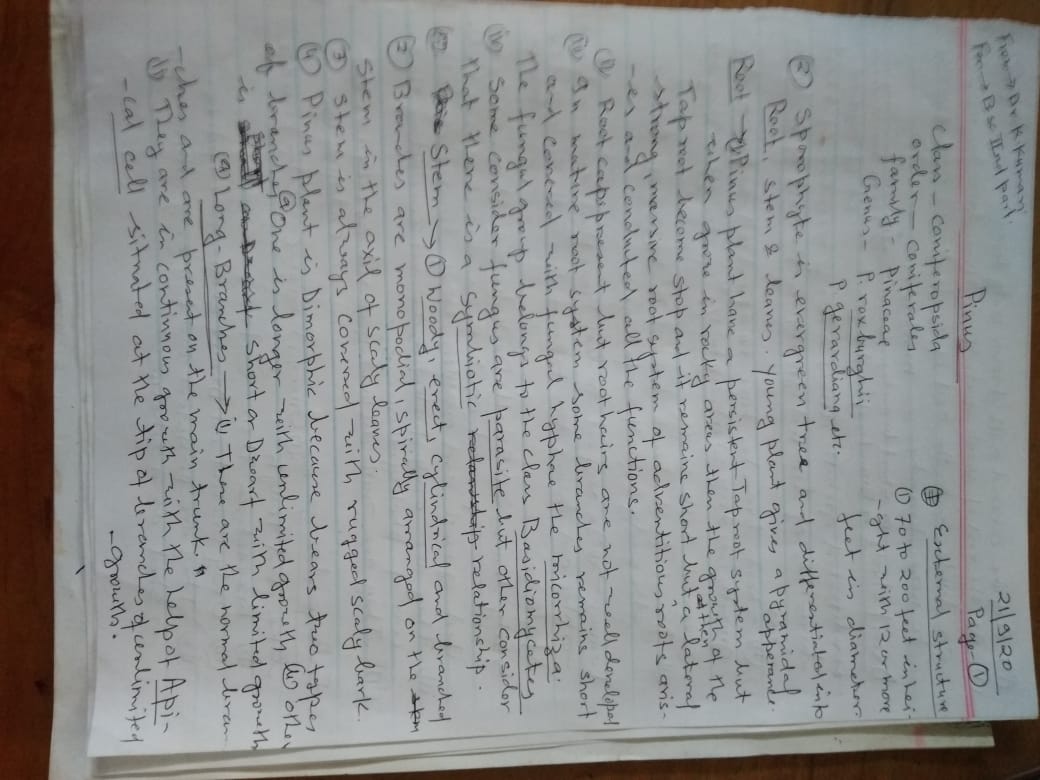 From → Dr K Kumari
For → B Sc IInd part
21/9/20
Page - ①
Pinus
Class - Coniferopsida
order - Coniferales
family - Pinaceae
Genus - P. roxburghii
P gerardiana etc.
External structure
① 70 to 200 feet in hei-
-ght with 12 or more
feet in diameter.
② Sporophyte is evergreen tree and differentiated into
Root, stem & leaves. young plant gives a pyramidal
apperance.
Root → (i) Pinus plant have a persistent Tap root system but
when grow in rocky areas then the growth of the
Tap root become stop and it remains short but a lateral
strong, massive root system of adventitious roots aris-
-es and conducted all the functions.
(ii) Root cap is present but root hairs are not well developed
(iii) In mature root system some branches remains short
and covered with fungal hyphae the micorrhiza.
The fungal group belongs to the class Basidiomycetes
(iv) Some consider fungus are parasite but other consider
that there is a symbiotic relationship.
Stem → ① Woody, erect, cylindrical and branched
② Branches are monopodial, spirally arranged on the
Stem in the axil of scaly leaves.
③ Stem is always covered with rugged scaly bark.
④ Pinus plant is Dimorphic because bears two types
of branches (i) One is longer with unlimited growth, (ii) other
is short or Dwarf with limited growth
(a) Long Branches → (i) These are the normal bran-
-ches and are present on the main trunk"
(ii) They are in continuous growth with the help of Api-
-cal cell situated at the tip of branches of unlimited
-growth.